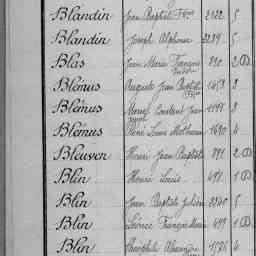 Blandin Jean Baptiste 2422 5
Blandin Joseph Alphonse 2239 5
Blas Jean Marie François 2 D
Blémus Auguste Jean Baptiste 8
Blémus Constant Jean 8
Blémus René Louis Mathurin 1690 4
Bleuven Henri Jean Baptiste 791 2 D
Blin Louis 1 D
Blin Jean Baptiste Julien 5
Blin Léonce François Marie 1 D
Blin Théophile 4